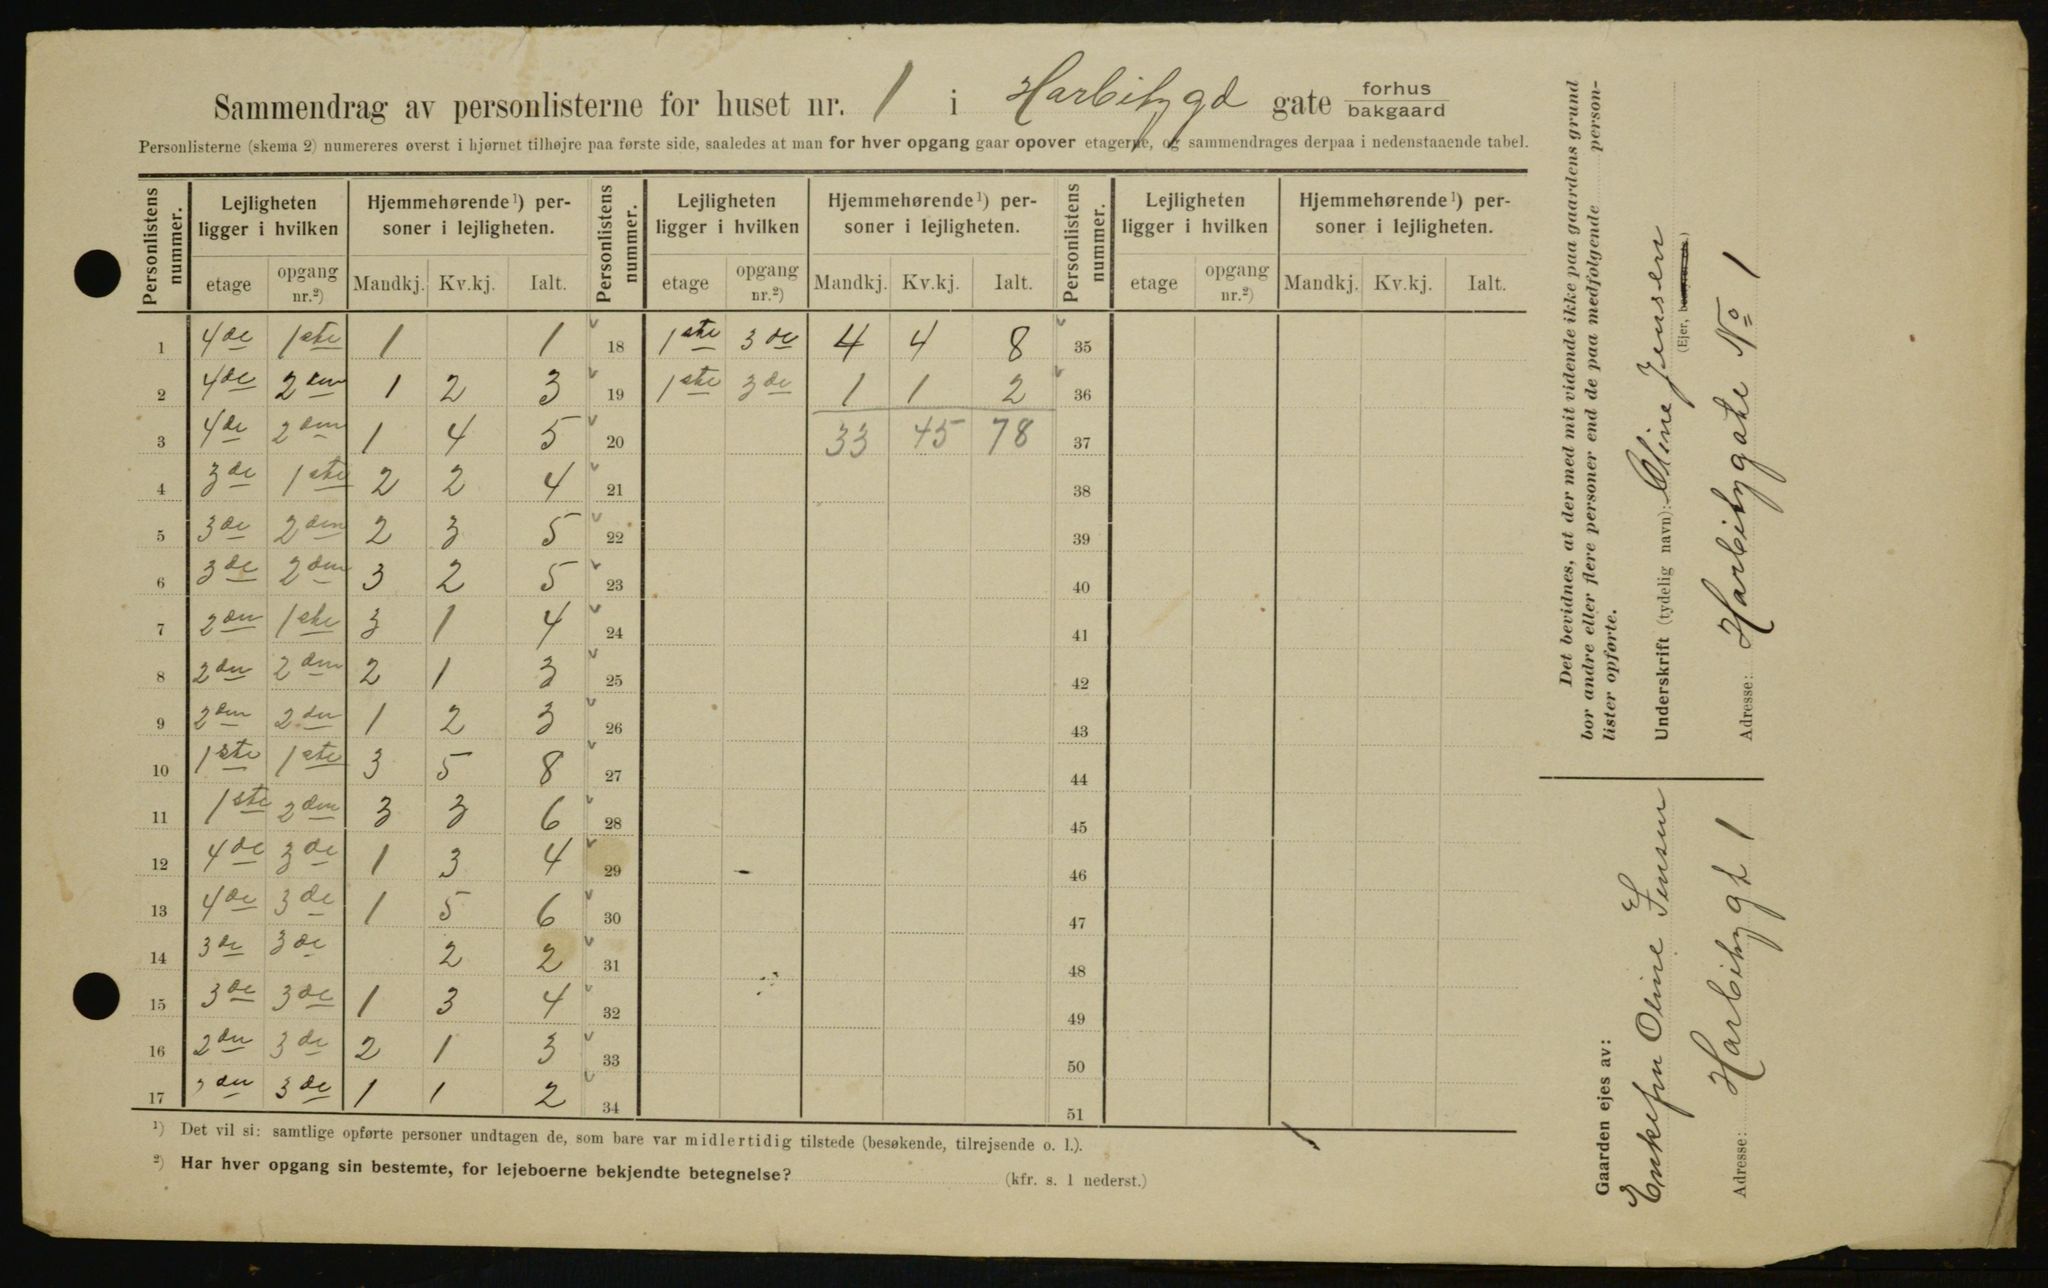 Sammendrag av personlisterne for huset nr. 1 i Harbitzgd gate forhus bakgaard
Personlisterne (skema 2) numereres øverst i hjørnet tilhøjre paa første side, saaledes at man for hver opgang gaar opover etagerne, og sammendrages derpaa i nedenstaaende tabel.
Personlistens nummer. Lejligheten ligger i hvilken Hjemmehørende¹) personer i lejligheten. Personlistens nummer. Lejligheten ligger i hvilken Hjemmehørende¹) personer i lejligheten. Personlistens nummer. Lejligheten ligger i hvilken Hjemmehørende¹) personer i lejligheten.
etage opgang nr.²) Mandkj. Kv.kj. Ialt. etage opgang nr.²) Mandkj. Kv.kj. Ialt. etage opgang nr.²) Mandkj. Kv.kj. Ialt.
1 4de 1ste 1 1 18 1ste 3de 4 4 8 35
2 4de 2den 1 2 3 19 1ste 3de 1 1 2 36
3 4de 2den 1 4 5 20 33 45 78 37
4 3de 1ste 2 2 4 21 38
5 3de 2den 2 3 5 22 39
6 3de 2den 3 2 5 23 40
7 2den 1ste 3 1 4 24 41
8 2den 2den 2 1 3 25 42
9 2den 2den 1 2 3 26 43
10 1ste 1ste 3 5 8 27 44
11 1ste 2den 3 3 6 28 45
12 4de 3de 1 3 4 29 46
13 4de 3de 1 5 6 30 47
14 3de 3de 2 2 31 48
15 3de 3de 1 3 4 32 49
16 2den 3de 2 1 3 33 50
17 2den 3de 1 1 2 34 51
¹) Det vil si: samtlige opførte personer undtagen de, som bare var midlertidig tilstede (besøkende, tilrejsende o. l.).
²) Har hver opgang sin bestemte, for lejeboerne bekjendte betegnelse? (kfr. s. 1 nederst.)
Det bevidnes, at der med mit vidende ikke paa gaardens grund
bor andre eller flere personer end de paa medfølgende personlister opførte.
Underskrift (tydelig navn): Oline Jensen
(Ejer,
Adresse: Harbitzgate No 1
Gaarden ejes av:
Enkefru Oline Jensen
Adresse: Harbitzgt 1